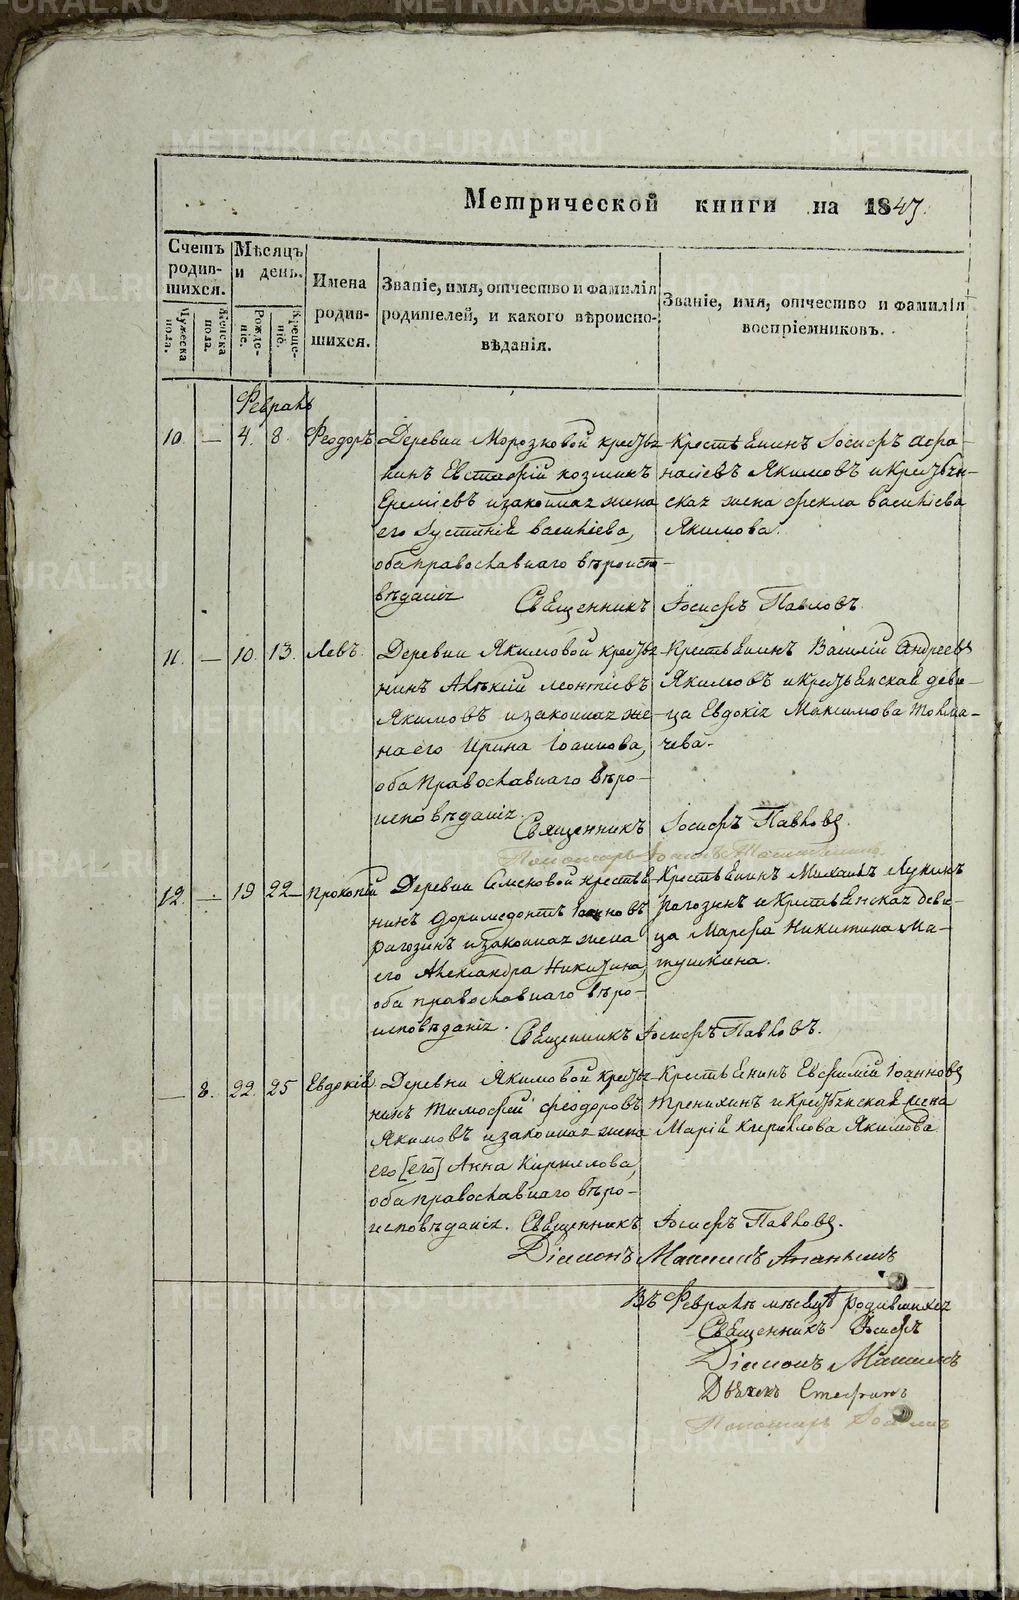 Метрической книги на 1843.
Счетъ родив- шихся.
Мужеска пола.
Женска пола.
Мѣсяцъ и день.
Рожде- ніе.
Креще- ніе.
Имена родив- шихся.
Званіе, имя, отчество и фамилія родителей, и какого вѣроиспо- вѣданія.
Званіе, имя, отчество и фамилія воспріемниковъ.
Февраль
10. — 4. 8. Феодоръ
Деревни Морозковой кресть-
нинъ Евстафій козминъ
Еремѣевъ и законная жена
его Іустинія василіева,
оба православнаго вѣроиспо-
вѣданія
Крестьянинъ Іосифъ афа-
насіевъ Якимовъ и Крестьян-
ская жена фекла василіева
Якимова.
Священникъ Іосифъ Павловъ.
11. — 10. 13. Левъ.
Деревни Якимовой кресть-
нинъ Алѣксій леонтіевъ
Якимовъ и законная же-
на его Ирина Іоаннова,
оба православнаго вѣро-
исповѣданія.
Крестьянинъ Василій Андреевъ
Якимовъ и Крестьянская деви-
ца Евдокія Максимова Толма-
чева.
Священникъ Іосифъ Павловъ.
Пономарь Іоаннъ
12. — 19 22 Прокопій
Деревни Семеновой крестья-
нинъ Доримедонтъ Іоанновъ
рагозинъ и законная жена
его Александра Никитина,
оба православнаго вѣро-
исповѣданія.
Крестьянинъ Михаилъ Лукинъ
рагозинъ и Крестьянская деви-
ца Марфа Никитина Ма-
тушкина.
Священникъ Іосифъ Павловъ.
— 8. 22. 25 Евдокія
Деревни Якимовой кресть-
нинъ тимофей феодоровъ
Якимовъ и законная жена
его [его] Анна Кирилова,
оба православнаго вѣро-
исповѣданія.
Крестьянинъ Евфимій Іоанновъ
тренихинъ и Крестьянская жена
Марія Кирилова Якимова
Священникъ Іосифъ Павловъ.
Діаконъ Максимъ Ананьинъ
Въ Февралѣ мѣсяцѣ родившихся
Священникъ Іосифъ
Діаконъ Максимъ
Дьячекъ Стефанъ
Пономарь Іоаннъ
METRIKI.GASO-URAL.RU